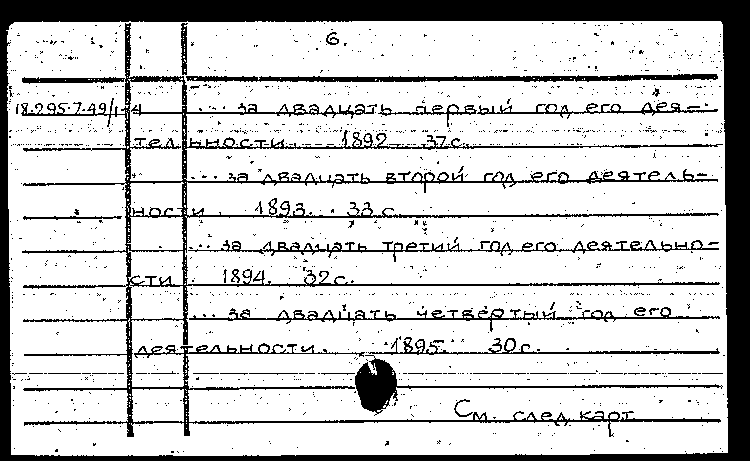 6.
18.295.7.49/1-4 ... за двадцать первый год его дея-
тельности 1892 37с.
... за двадцать второй год его деятель-
ности 1893. 33 с.
... за двадцать третий год его деятельно-
сти 1894. 32с.
... за двадцать четвертый год его
деятельности. 1895. 30с.
См. след карт